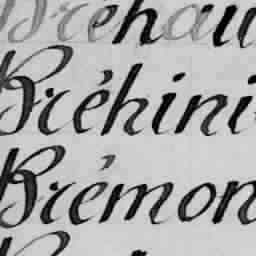 Bréhau
Bréhini
Brémon